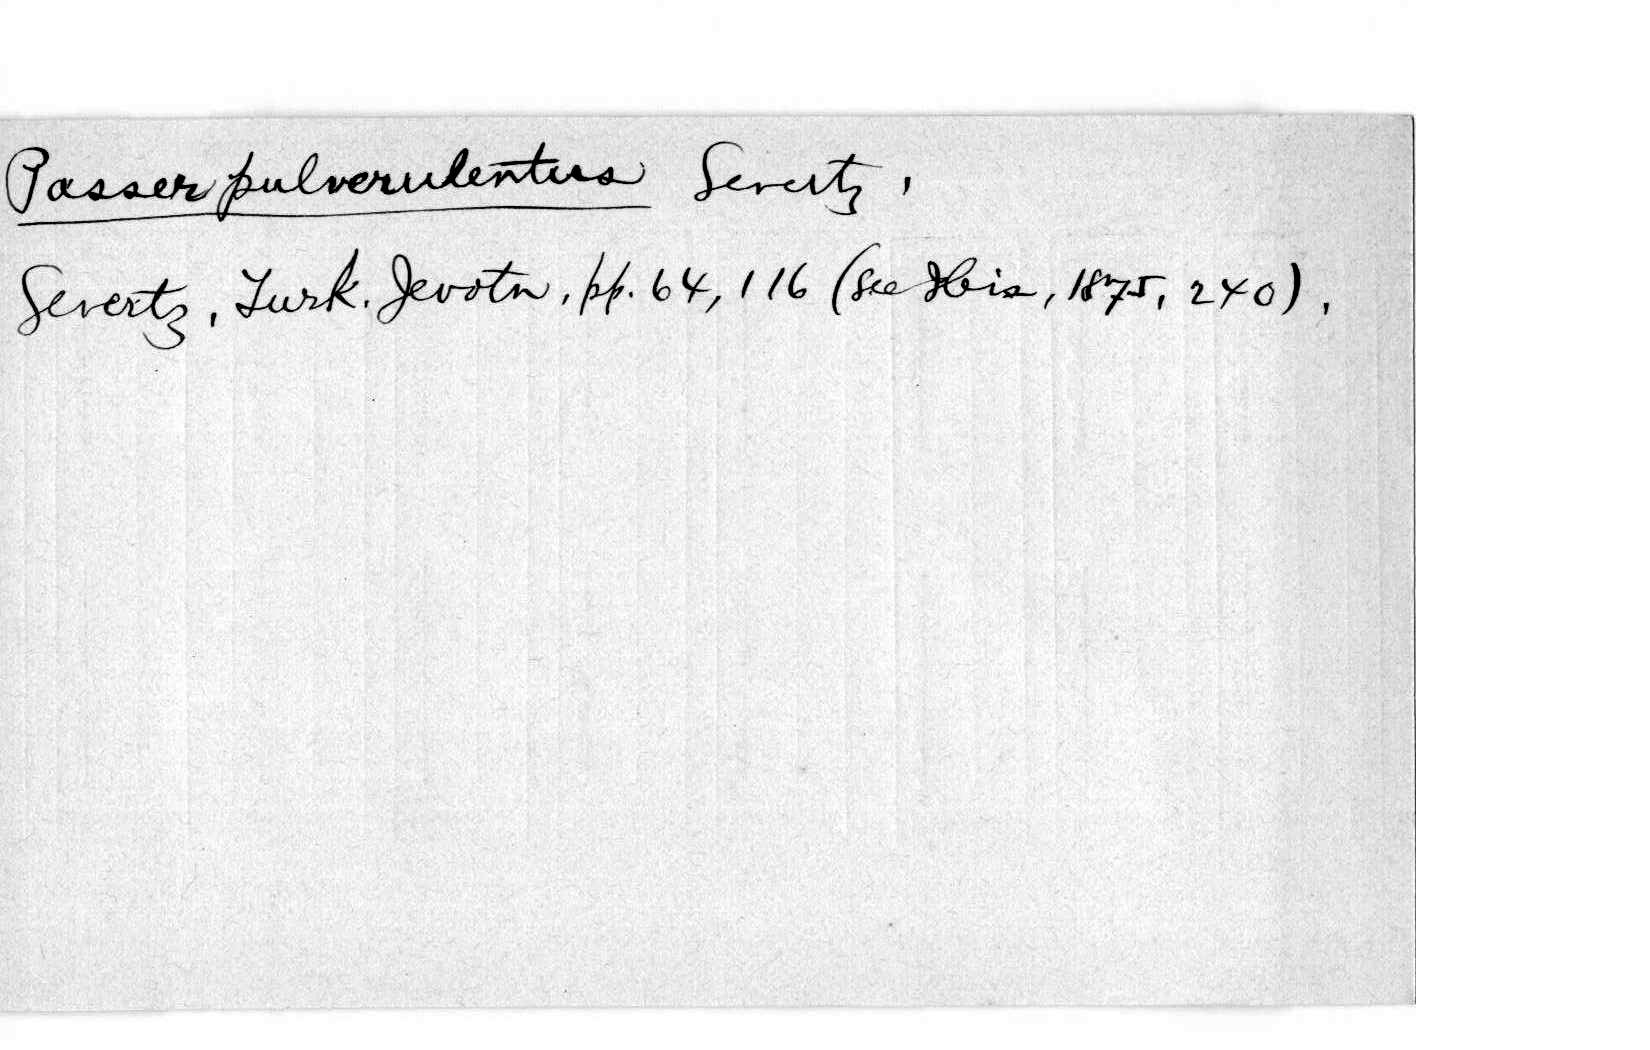 Passer pulverulentus Severtz,
Severtz, Turk. Jevotn, pp. 64, 116 (see Ibis, 1875, 240),